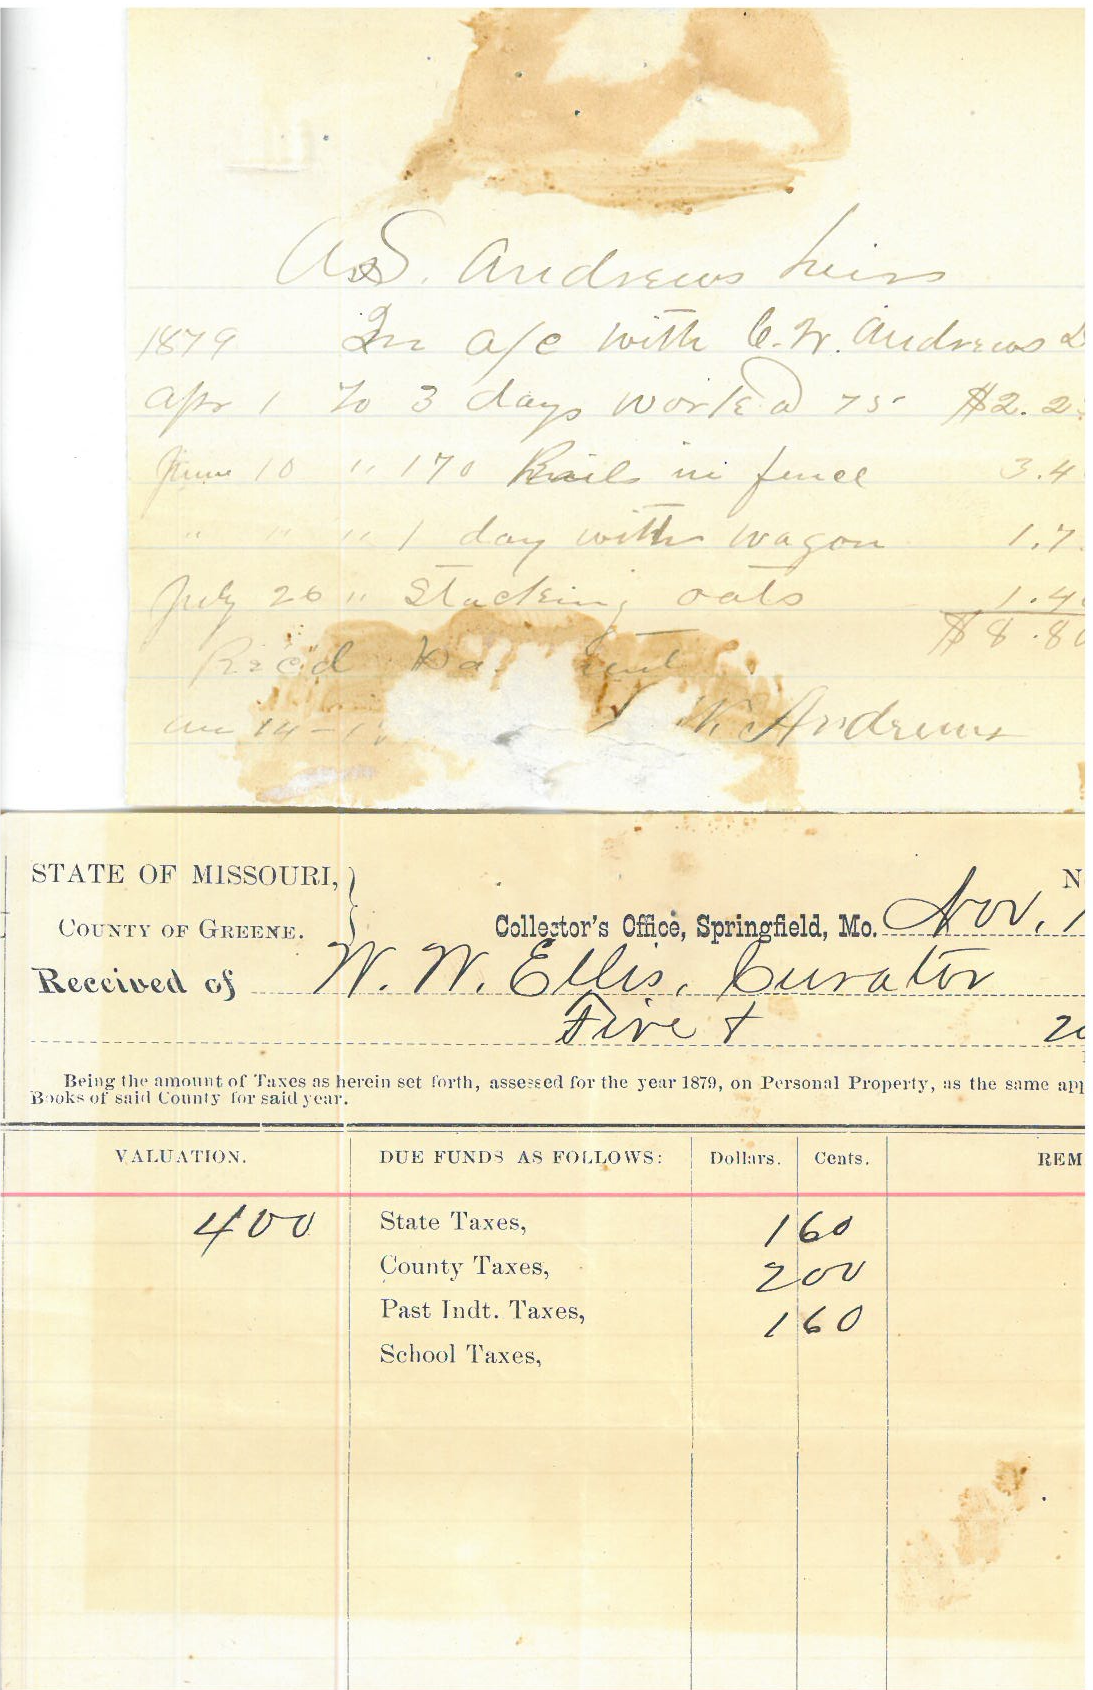 A. S. Andrews heirs
1879 In a/c with C. W. Andrews D
Apr 1 To 3 days work @ 75 $2.2
June 10 " 170 Rails in fence 3.4
" " " 1 day with wagon 1.7
July 26 " Stacking oats 1.40
$8.80
Rec'd
14 - W. Andrews
STATE OF MISSOURI,
COUNTY OF GREENE.
N
Collector's Office, Springfield, Mo. Nov. 1
Received of W. W. Ellis, Curator
Five + 20
Being the amount of Taxes as herein set forth, assessed for the year 1879, on Personal Property, as the same app
Books of said County for said year.
VALUATION. DUE FUNDS AS FOLLOWS: Dollars. Cents. REM
400 State Taxes, 1 60
County Taxes, 2 00
Past Indt. Taxes, 1 60
School Taxes,